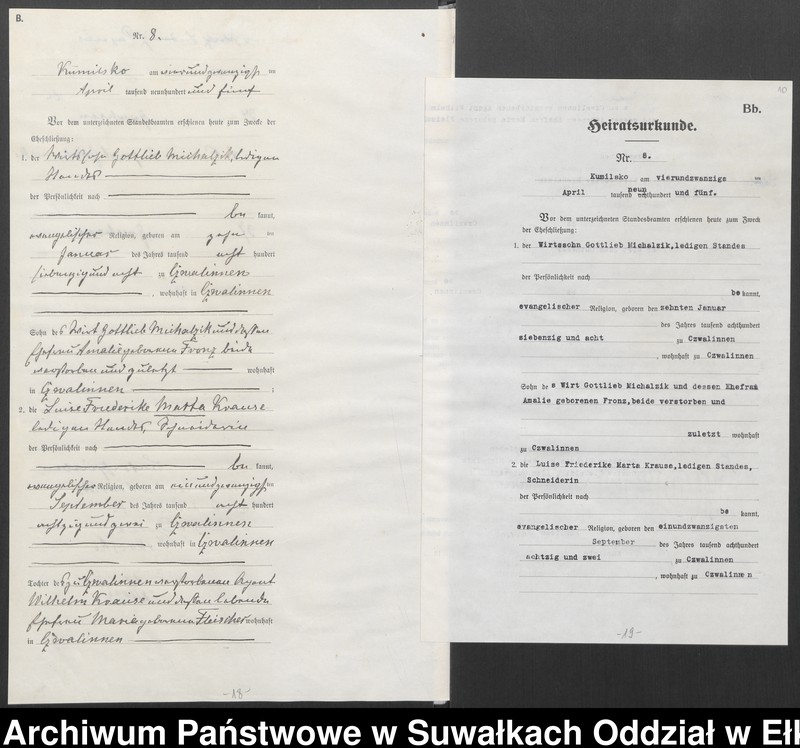 B.
Nr. 8.
Kumilsko am vierundzwanzigsten
April tausend neunhundert und fünf
Vor dem unterzeichneten Standesbeamten erschienen heute zum Zwecke der
Eheschließung:
1. der Wirtssohn Gottlieb Michalzik, ledigen
Standes
der Persönlichkeit nach
be kannt,
evangelischer Religion, geboren am zehnten
Januar des Jahres tausend acht hundert
siebenzig und acht zu Czwalinnen
, wohnhaft in Czwalinnen
Sohn des Wirt Gottlieb Michalzik und dessen
Ehefrau Amalie geborenen Fronz beide
verstorben und zuletzt wohnhaft
in Czwalinnen ;
2. die Luise Friederike Martha Krause
ledigen Standes, Schneiderin
der Persönlichkeit nach
be kannt,
evangelischer Religion, geboren am einundzwanzigsten
September des Jahres tausend acht hundert
achtzig und zwei zu Czwalinnen
, wohnhaft in Czwalinnen
Tochter des zu Czwalinnen verstorbenen Agent
Wilhelm Krause und dessen lebende
Ehefrau Marie geborenen Fleischer wohnhaft
in Czwalinnen
-18-
10
Bb.
Heiratsurkunde.
Nr. 8.
Kumilsko am vierundzwanzigs ten
April tausend neun hundert und fünf.
Vor dem unterzeichneten Standesbeamten erschienen heute zum Zweck
der Eheschließung:
1. der Wirtssohn Gottlieb Michalzik, ledigen Standes
der Persönlichkeit nach
be kannt,
evangelischer Religion, geboren den zehnten Januar
des Jahres tausend achthundert
siebenzig und acht zu Czwalinnen
, wohnhaft zu Czwalinnen
Sohn de s Wirt Gottlieb Michalzik und dessen Ehefrau
Amalie geborenen Fronz, beide verstorben und
zuletzt wohnhaft
zu Czwalinnen
2. die Luise Friederike Marta Krause, ledigen Standes,
Schneiderin
der Persönlichkeit nach
be kannt,
evangelischer Religion, geboren den einundzwanzigsten
September des Jahres tausend achthundert
achtzig und zwei zu Czwalinnen
, wohnhaft zu Czwalinnen
-19-
Archiwum Państwowe w Suwałkach Oddział w Eł